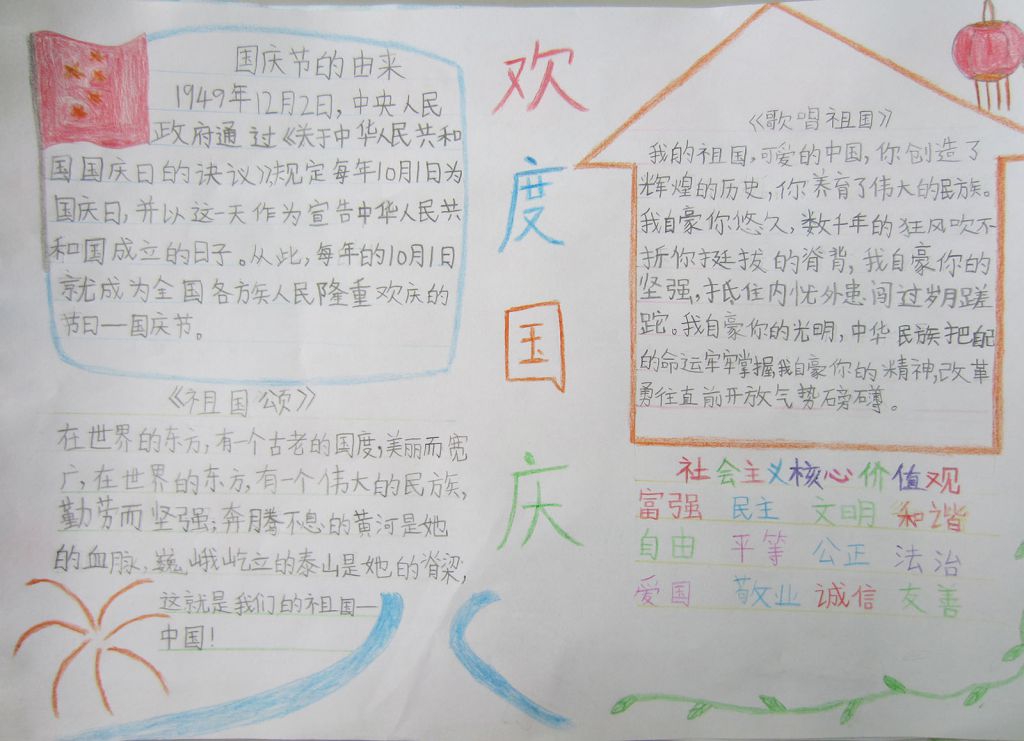 国庆节的由来
1949年12月2日,中央人民
政府通过《关于中华人民共和
国国庆日的决议》,规定每年10月1日为
国庆日,并以这一天作为宣告中华人民共
和国成立的日子。从此,每年的10月1日
就成为全国各族人民隆重欢庆的
节日—国庆节。
《祖国颂》
在世界的东方,有一个古老的国度,美丽而宽
广,在世界的东方,有一个伟大的民族,
勤劳而坚强;奔腾不息的黄河是她
的血脉,巍峨屹立的泰山是她的脊梁,
这就是我们的祖国—
中国!
欢
度
国
庆
《歌唱祖国》
我的祖国,可爱的中国,你创造了
辉煌的历史,你养育了伟大的民族。
我自豪你悠久,数千年的狂风吹不
折你挺拔的脊背,我自豪你的
坚强,抵住内忧外患闯过岁月蹉
跎。我自豪你的光明,中华民族把自己
的命运牢牢掌握,我自豪你的精神,改革
勇往直前开放气势磅礴。
社会主义核心价值观
富强 民主 文明 和谐
自由 平等 公正 法治
爱国 敬业 诚信 友善